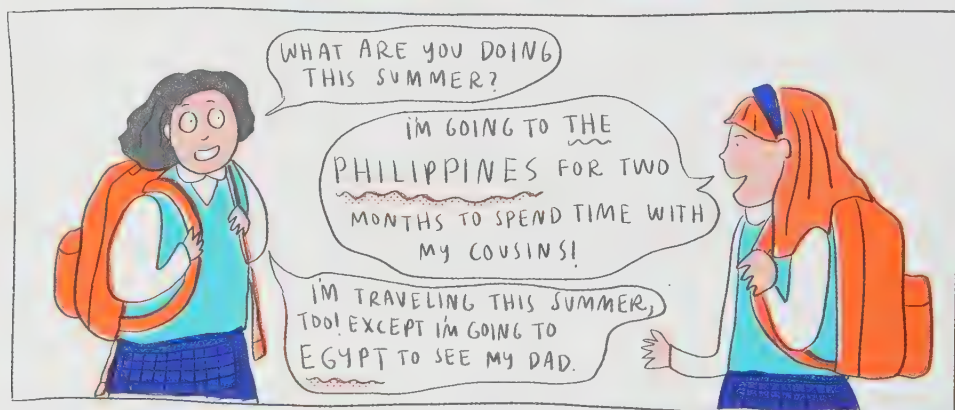 WHAT ARE YOU DOING
THIS SUMMER?
I'M GOING TO THE
PHILIPPINES FOR TWO
MONTHS TO SPEND TIME WITH
MY COUSINS!
I'M TRAVELING THIS SUMMER,
TOO! EXCEPT I'M GOING TO
EGYPT TO SEE MY DAD.